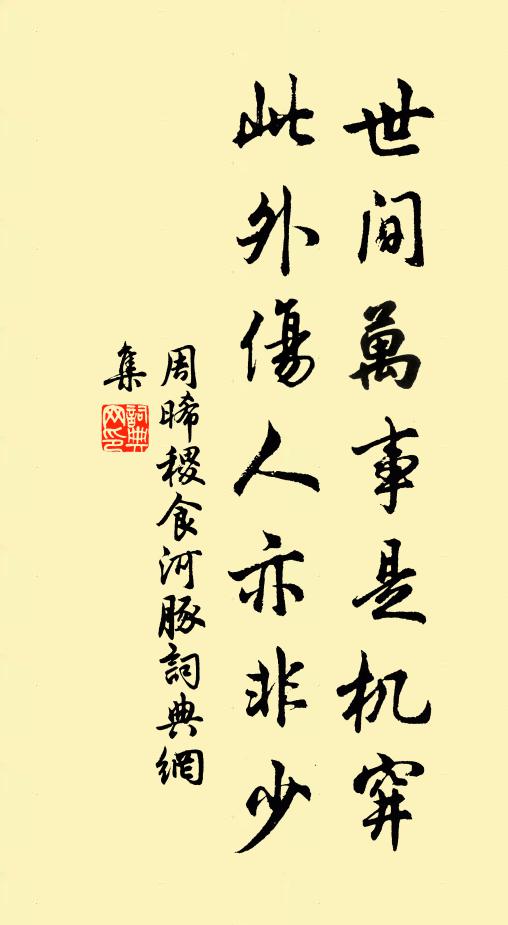 世间萬事是机穽
此外傷人亦非少
周晞稷食河豚詞典網
集
詞典
网印